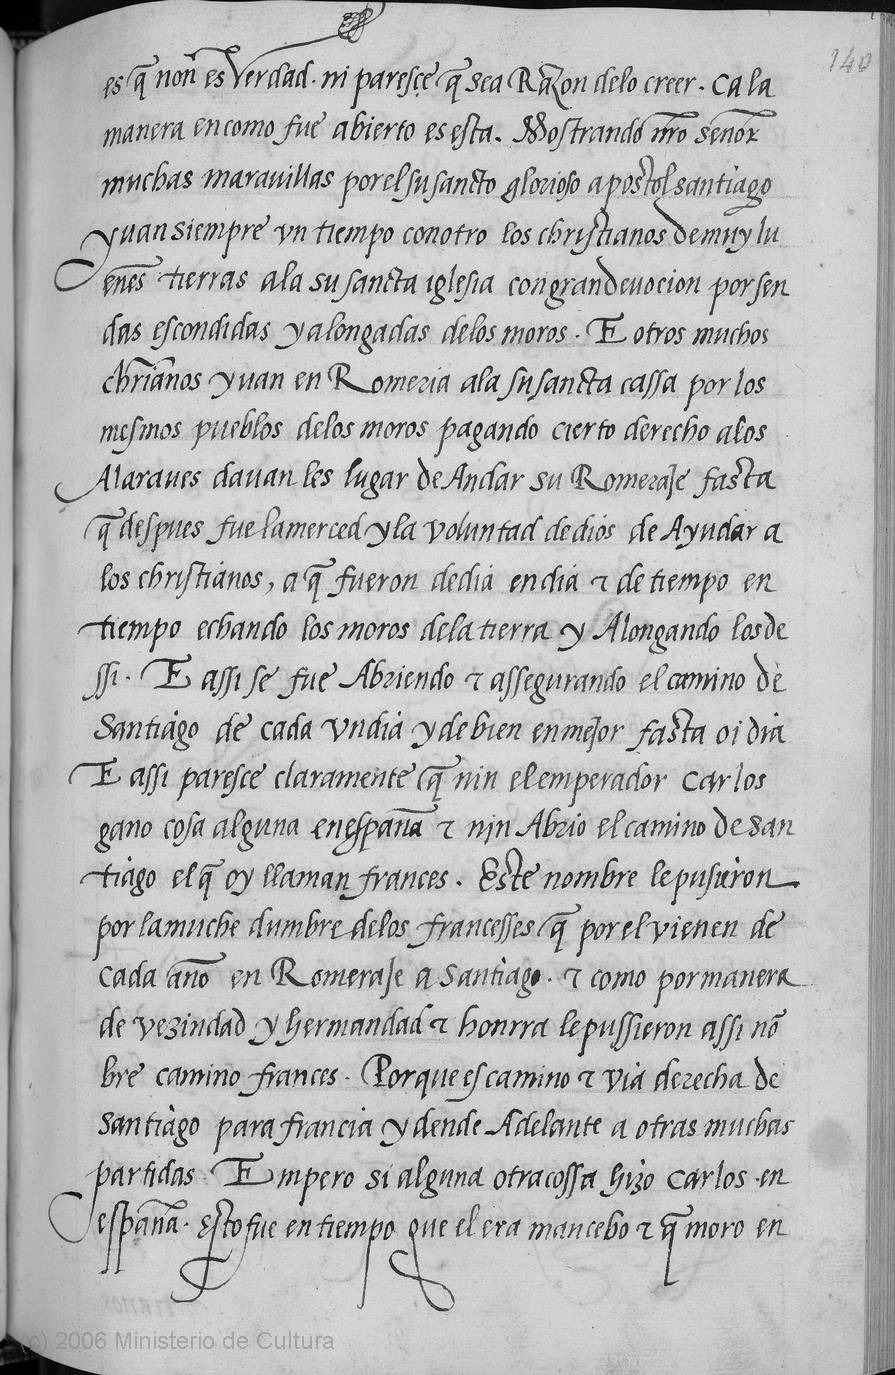 140
es q̃ non̄ es Verdad. ni paresçe q̃ sea Razon delo creer. ca la
manera en como fue abierto es esta. Mostrando nr̃o señor
muchas marauillas por el su sancto glorioso apostol santiago
yuan siempre vn tiempo con otro los christianos de muy lu
enes tierras ala su sancta iglesia con gran deuocion por sen
das escondidas y alongadas delos moros. E otros muchos
chr̃ianos yuan en Romeria ala su sancta cassa por los
mesmos pueblos delos moros pagando cierto derecho alos
Alaraues dauan les lugar de Andar su Romeraje fasta
q̃ despues fue la merced y la voluntad de dios de Ayudar a
los christianos, a q̃ fueron de dia en dia ⁊ de tiempo en
tiempo echando los moros dela tierra y Alongando los de
ssi. E assi se fue Abriendo ⁊ assegurando el camino de
Santiago de cada vn dia y de bien en mejor fasta oi dia
E assi paresce claramente q̃ nin el emperador Carlos
gano cosa alguna en españa ⁊ nin Abrio el camino de san
tiago el q̃ oy llaman frances. Este nombre le pusieron
por la muche dumbre delos francesses q̃ por el vienen de
cada año en Romeraje a Santiago. ⁊ como por manera
de vezindad y hermandad ⁊ honrra le pussieron assi nõ
bre camino frances. Porque es camino ⁊ via derecha de
santiago para francia y dende Adelante a otras muchas
partidas. Empero si alguna otra cossa hizo Carlos en
españa. esto fue en tiempo que el era mancebo ⁊ q̃ moro en
(c) 2006 Ministerio de Cultura